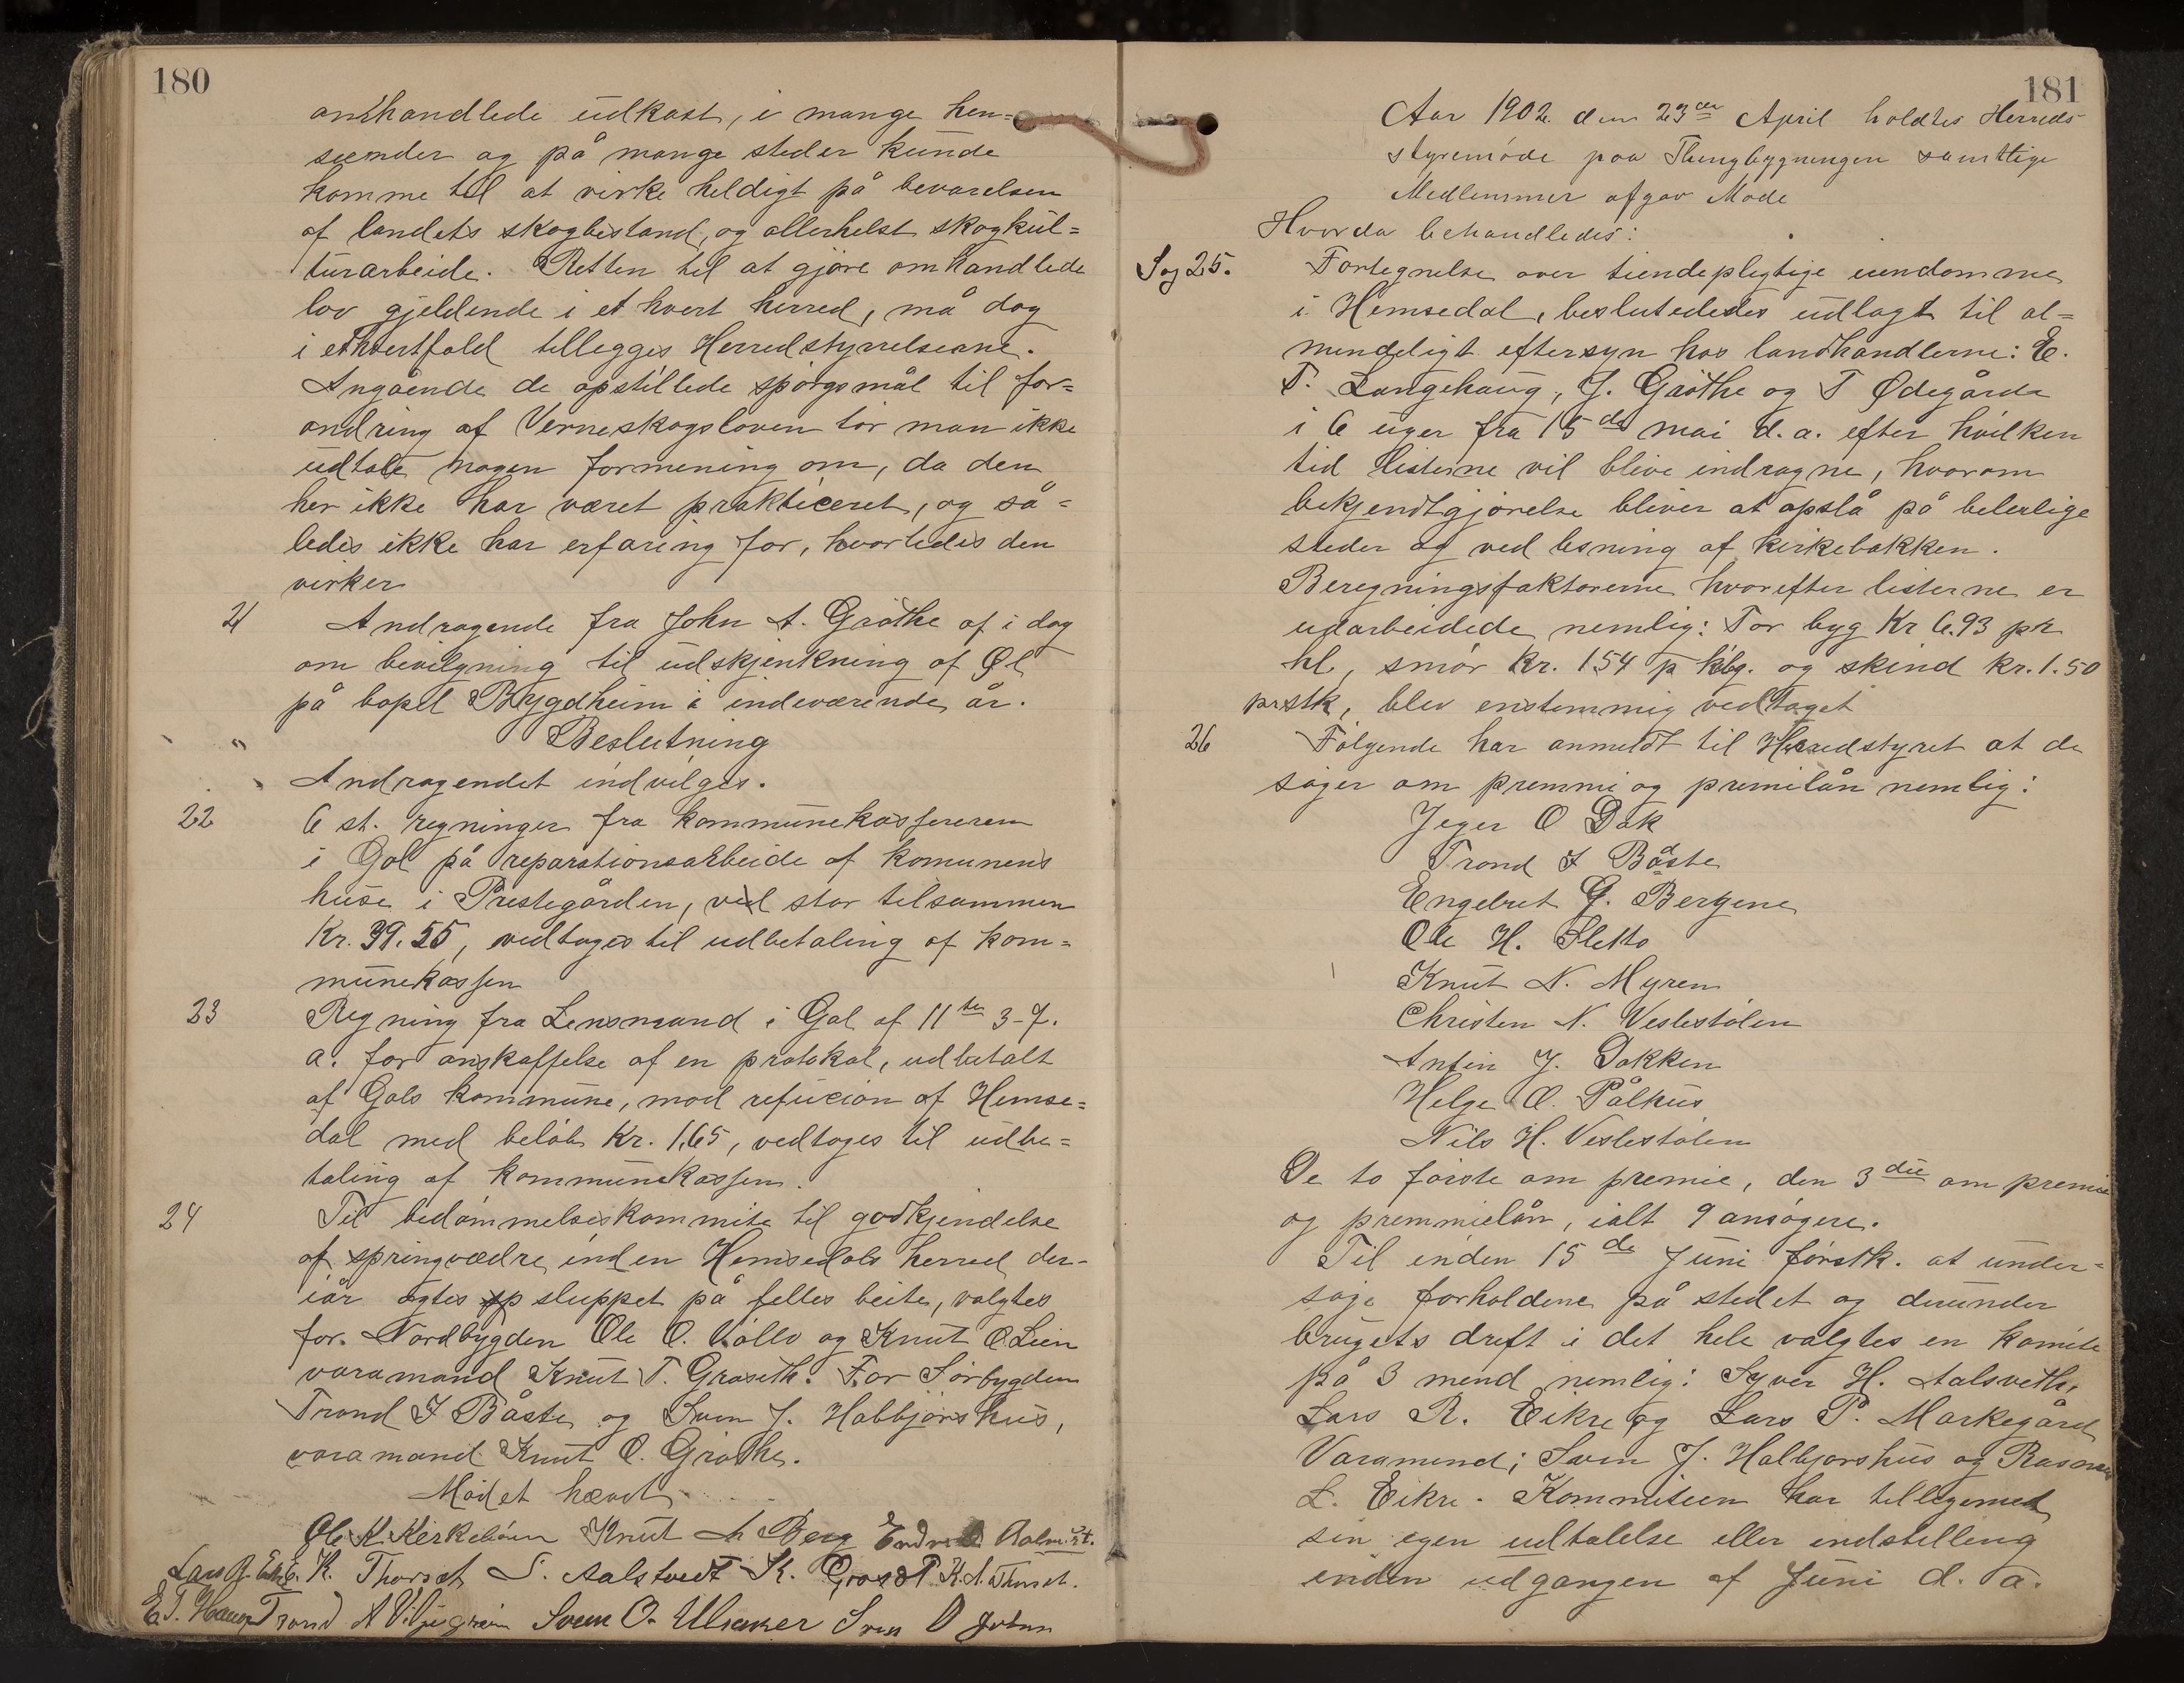 180
omhandlede udkast, i mange hen=
seender og på mange steder kunde
komme til at virke heldigt på bevarelsen
af landets skogbestand, og allerhelst skogkul=
turarbeide. Retten til at gjøre omhandlede
lov gjeldende i et hvert herred, må dog
i ethvertfald tillegges Herredstyrelserne.
Angående de opstillede spørgsmål til for=
andring af Verneskogsloven tør man ikke
udtale nogen formening om, da den
her ikke har været prakticeret, og så=
ledes ikke har erfaring for, hvorledes den
virker
21 Andragende fra John A. Grøthe af i dag
om bevilgning til udskjenkning af Øl
på bopel Bygdheim i indeværende år.
Beslutning
Andragendet indvilges.
22 6 st. regninger fra kommunekassereren
i Gol på reparationsarbeide af komunens
huse i Prestegården, stor tilsammen
Kr. 39.55, vedtages til udbetaling af kom=
munekassen
23 Regning fra Lensmand i Gol af 11te 3-f.
a. for anskaffelse af en protokol, udbetalt
af Gols kommune, mod refucion af Hemse=
dal med beløb Kr. 1,65, vedtages til udbe=
taling af kommunekassen.
24 Til bedømmelseskommite til godkjendelse
af springvædre inden Hemsedals herred der-
iår agtes sluppet på felles beite, valgtes
for Nordbygden Ole O. og Knut O. Lien
varamand Knut T. Grøseth. For Sørbygden
Trond I Båste og Sven J. Halbjørshus,
varamand Knut O. Grøthe.
Mødet hævet
Ole K Kirkebøen Knut A Berg Endre
Lars R. Eikre K. Thorset S. Aalstvedt K. Grøset K. A. Thorset.
E T. Haug Trond A Viljugrein Sven O. Ulsaker Sven O
181
Aar 1902 den 23de April holdtes Herreds
styremøde paa Thingbygningen samtlige
Medlemmer afgav Møde
Hvorda behandledes:
Sag 25. Fortegnelse over tiendepligtige eiendomme
i Hemsedal, beslutededes udlagt til al=
mindeligt eftersyn hos landhandlerne: E.
T. Langehaug, J. Grøthe og T Ødegårde
i 6 uger fra 15de mai d. a. efter hvilken
tid listerne vil blive indragne, hvorom
bekjendtgjørelse bliver at opslå på beleilige
steder og ved lesning af kirkebakken.
Beregningsfaktorerne hvorefter listerne er
udarbeidede nemlig: For byg Kr 6.93 pr
hl, smør kr. 1.54 p kg. og skind kr. 1.50
pr stk, blev enstemmig vedtaget
26 Følgende har anmeldt til Herredstyret at de
søger om premmi og premilån nemlig:
Jeger O Dok
Trond I Båste
Engebret G. Bergene
Ole H. Sletto
Knut N. Myren
Christen N. Veslestølen
Anfin J. Dokken
Helge O. Pålhus
Nils H. Veslestølen
De to første om premie, den 3die om premie
og premmielån, ialt 9 ansøgere.
Til inden 15de Juni førstk. at under=
søge forholdene på stedet og derunder
brugets drift i det hele valgtes en komite
på 3 mend nemlig: Syver H. Aalsveth,
Lars R. Eikre og Lars P. Markegård
Varamend; Sven J. Halbjørshus og Rasmus
L. Eikre. Kommiteen har tilligemed
sin egen udtalelse eller indstilling
inden udgangen af Juni d. a.